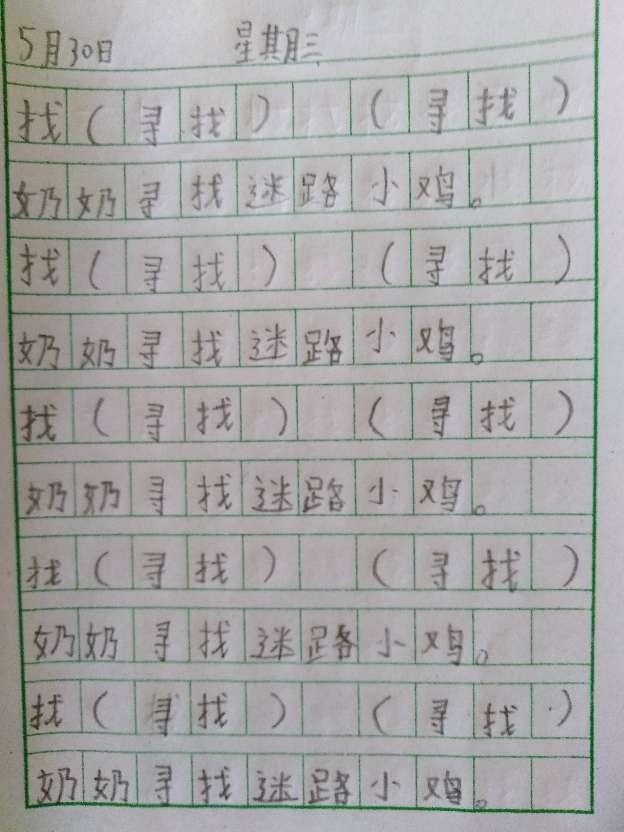 5月30日 星期三
找(寻找) (寻找)
奶奶寻找迷路小鸡。
找(寻找) (寻找)
奶奶寻找迷路小鸡。
找(寻找) (寻找)
奶奶寻找迷路小鸡。
找(寻找) (寻找)
奶奶寻找迷路小鸡。
找(寻找) (寻找)
奶奶寻找迷路小鸡。